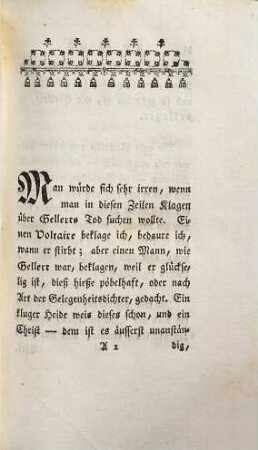 Man würde sich sehr irren, wenn
man in diesen Zeilen Klagen
über Gellerts Tod suchen wollte. Ei-
nen Voltaire beklage ich, bedaure ich,
wann er stirbt; aber einen Mann, wie
Gellert war, beklagen, weil er glückse-
lig ist, dieß hieße pöbelhaft, oder nach
Art der Gelegenheitsdichter, gedacht. Ein
kluger Heide weis dieses schon, und ein
Christ — dem ist es äusserst unanstän-
A 2 dig,